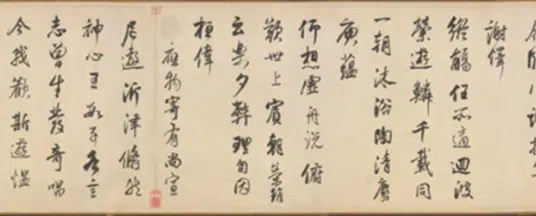 謝繹
縱觴任所適迴波
縈遊鱗千載同
一朝沐浴陶清塵
庾蘊
仰想虛舟說俯
歎世上賓朝榮雖
云樂夕斃理自因
桓偉
應物寄有尚宣
尼遨沂津脩然
神心王數子各言
志曾生發奇唱
今我歡斯遊慍